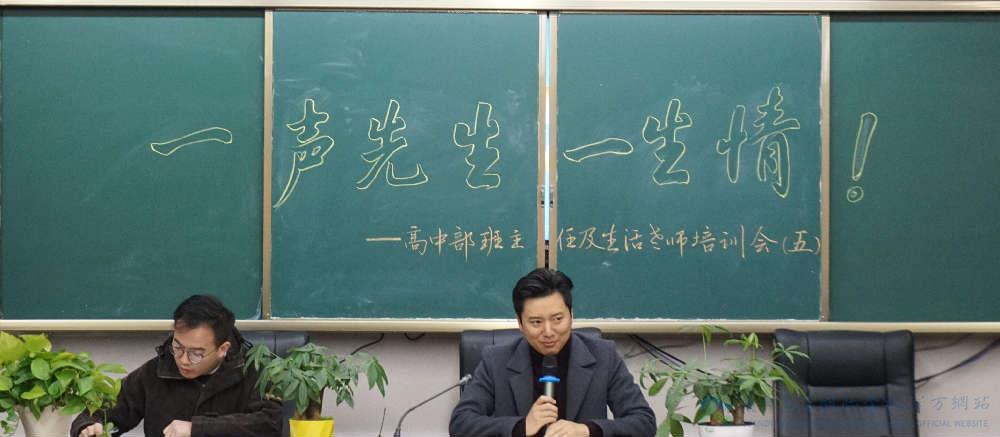 一声先生一生情！
—高中部班主任及生活老师培训会(五)
方網站
OFFICIAL WEBSITE